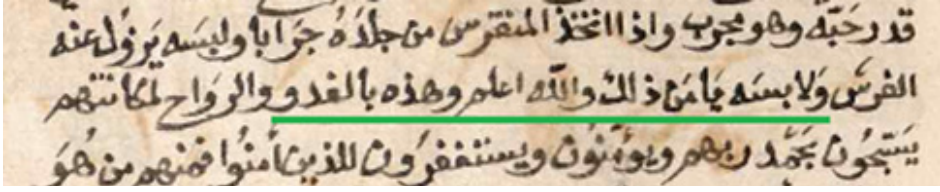 قدر حبّه وهو مجرب واذا اتخذ المنقرس من جلده جرابا ولبسه يزول عنه
القرس ولابسه يامن ذلك والله اعلم وهذه بالغدو والرواح لمكانتهم
يسبّحون بحمد ربهم ويؤمنون ويستغفرون للذين امنوا فمنهم من هو